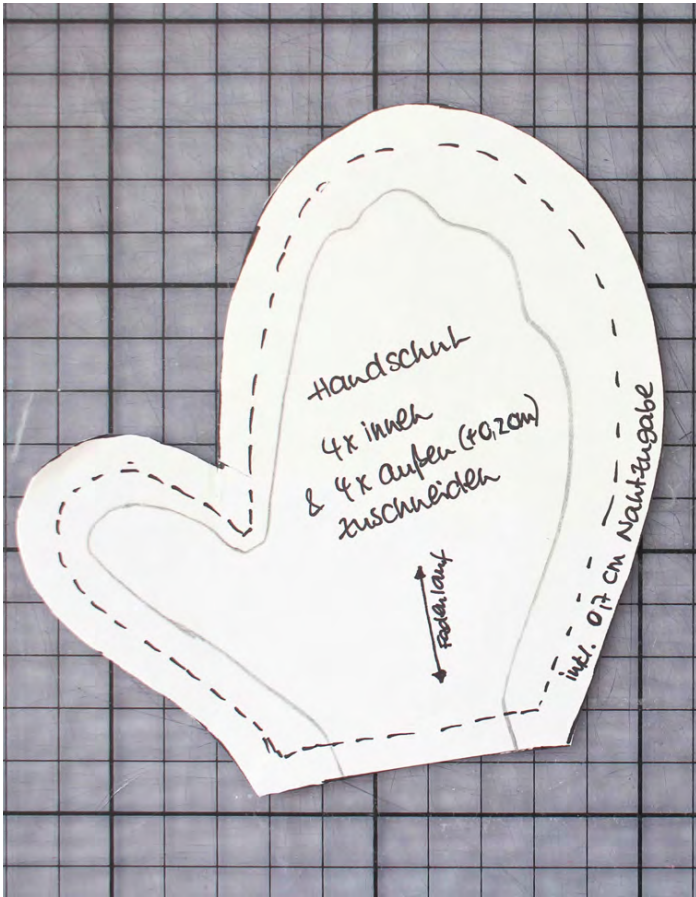 Handschuh
4x innen
& 4x außen (+0,2cm)
zuschneiden
Fadenlauf
inkl. 0,7 cm Nahtzugabe